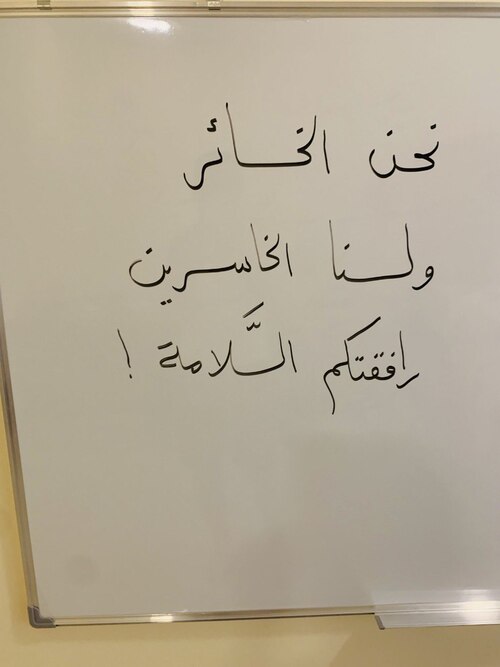 نحن الخسائر
ولسنا الخاسرين
رافقتكم السَّلامة !